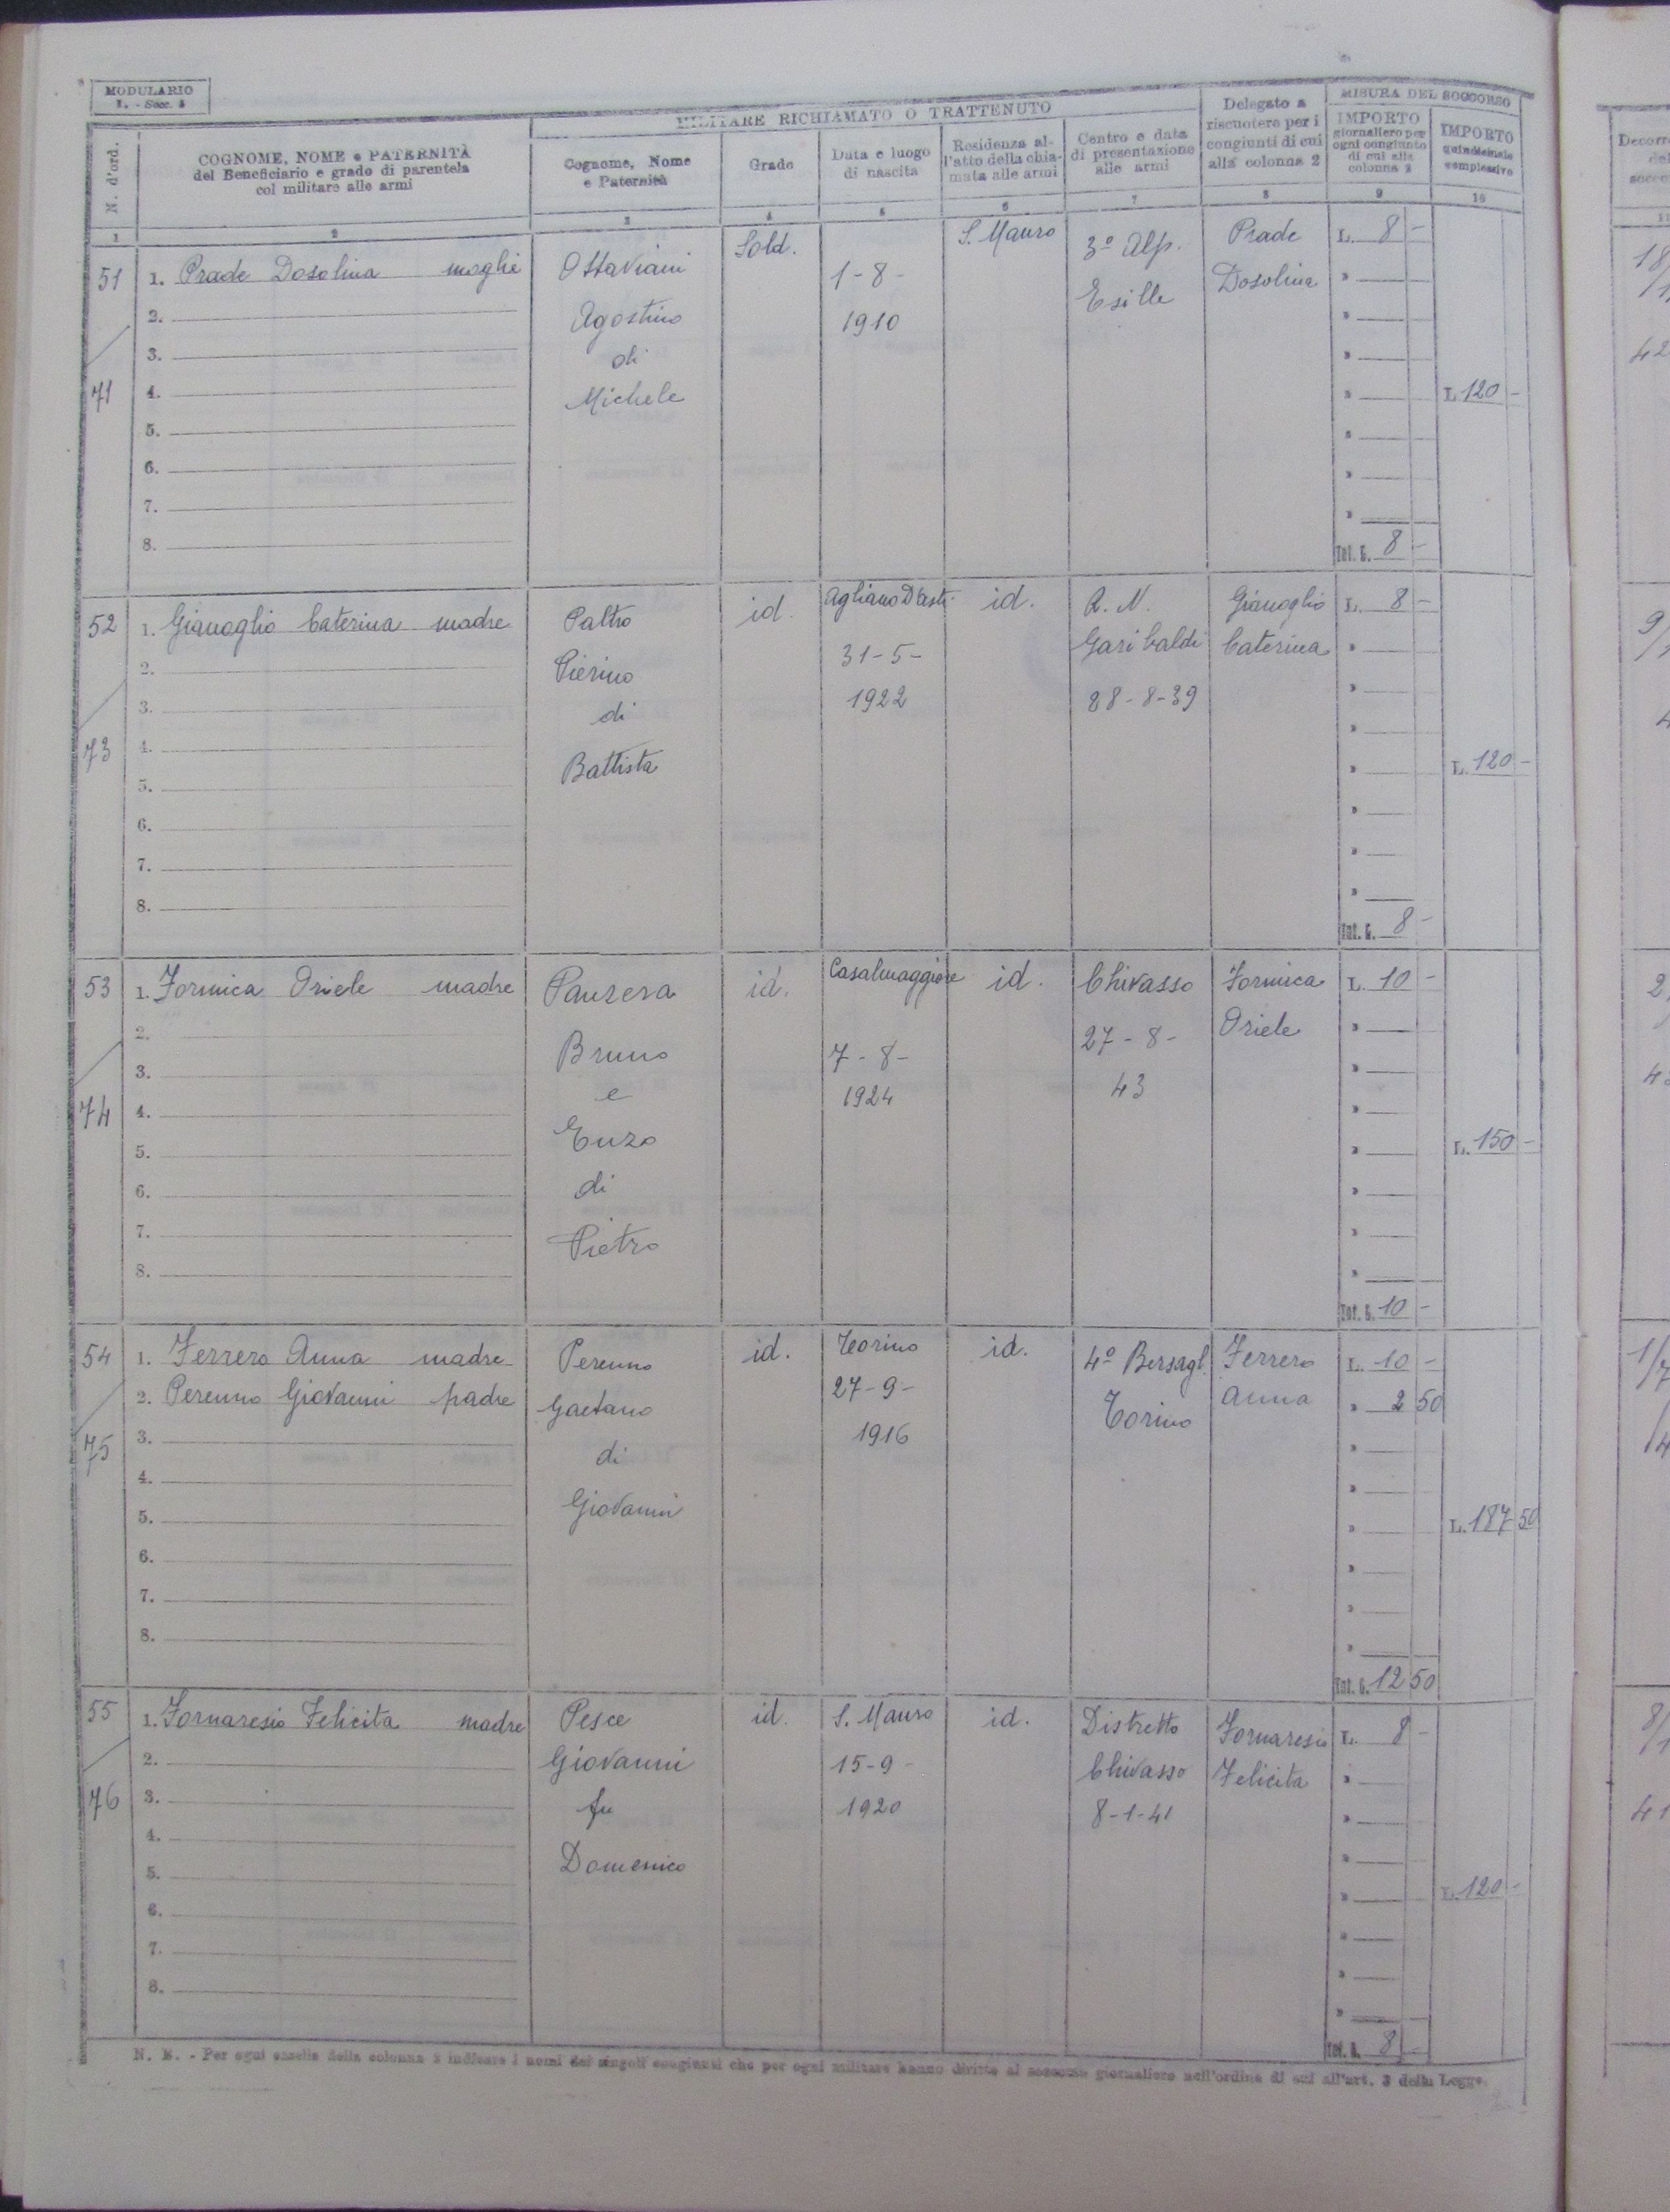 MODULARIO
I. - Socc. 5
N. d'ord.
COGNOME, NOME e PATERNITÀ
del Beneficiario e grado di parentela
col militare alle armi
MILITARE RICHIAMATO O TRATTENUTO
Cognome, Nome
e Paternità
Grado
Data e luogo
di nascita
Residenza al-
l'atto della chia-
mata alle armi
Centro e data
di presentazione
alle armi
Delegato a
riscuotere per i
congiunti di cui
alla colonna 2
MISURA DEL SOCCORSO
IMPORTO
giornaliero per
ogni congiunto
di cui alla
colonna 2
IMPORTO
quindicinale
complessivo
1 2 3 4 5 6 7 8 9 10
51
71
1. Prade Dosolina moglie
2.
3.
4.
5.
6.
7.
8.
Ottaviani
Agostino
di
Michele
Sold.
1-8-
1910
S. Mauro
3º Alp.
Exille
Prade
Dosolina
L. 8 -
Tot. L. 8 -
L. 120 -
52
73
1. Gianoglio Caterina madre
2.
3.
4.
5.
6.
7.
8.
Paltro
Pierino
di
Battista
id.
Agliano D'Asti
31-5-
1922
id.
R. N.
Garibaldi
28-8-39
Gianoglio
Caterina
L. 8 -
Tot. L. 8 -
L. 120 -
53
74
1. Formica Oriele madre
2.
3.
4.
5.
6.
7.
8.
Panzera
Bruno
e
Enzo
di
Pietro
id.
Casalmaggiore
7-8-
1924
id.
Chivasso
27-8-
43
Formica
Oriele
L. 10 -
Tot. L. 10 -
L. 150 -
54
75
1. Ferrero Anna madre
2. Perenno Giovanni padre
3.
4.
5.
6.
7.
8.
Perenno
Gaetano
di
Giovanni
id.
Torino
27-9-
1916
id.
4º Bersagl.
Torino
Ferrero
Anna
L. 10 -
" 2 50
Tot. L. 12 50
L. 187 50
55
76
1. Fornaresio Felicita madre
2.
3.
4.
5.
6.
7.
8.
Pesce
Giovanni
fu
Domenico
id.
S. Mauro
15-9-
1920
id.
Distretto
Chivasso
8-1-41
Fornaresio
Felicita
L. 8 -
Tot. L. 8 -
L. 120 -
N. B. - Per ogni casella della colonna 2 indicare i nomi dei singoli congiunti che per ogni militare hanno diritto al soccorso giornaliero nell'ordine di cui all'art. 3 della Legge.